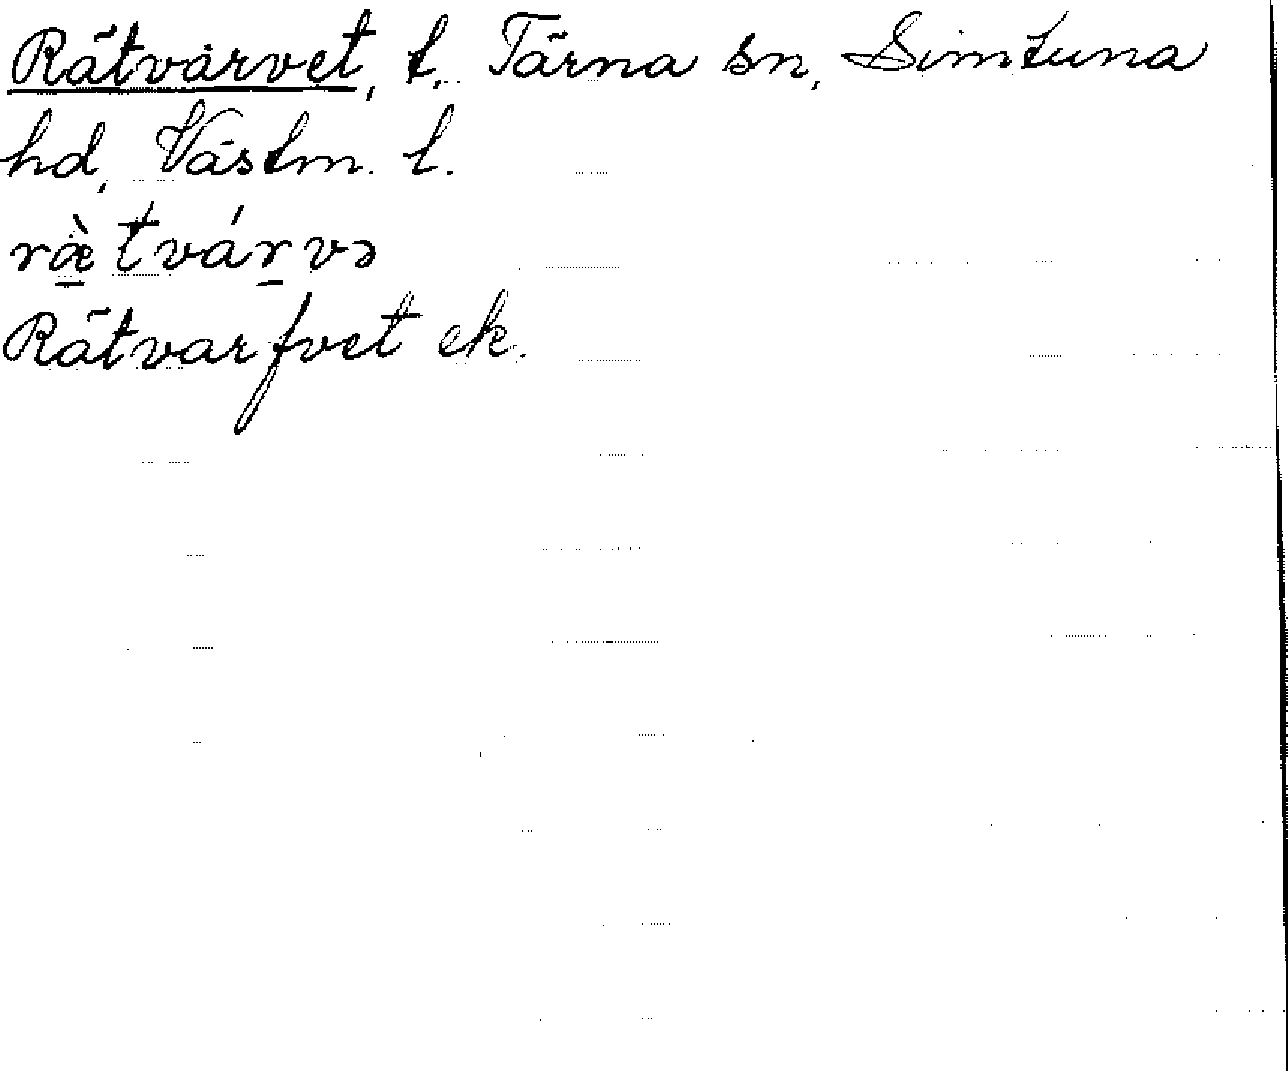 Rätvarvet, t. Tärna sn, Simtuna
hd, Västm. l.
ræ̀tvárvə
Rätvarfvet ek.